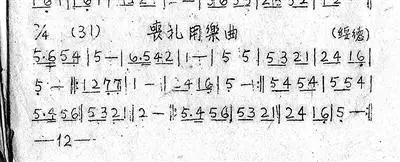 2/4 (31) 喪扎用樂曲 (綏德)
5·654|5—|6·542|1—|5 5|5321|2416|
5—:‖:1277|1—|:2416|5—:‖5454|554|
5·456|5321|2—‖:5·456|5321|2416|5—:‖
—12—